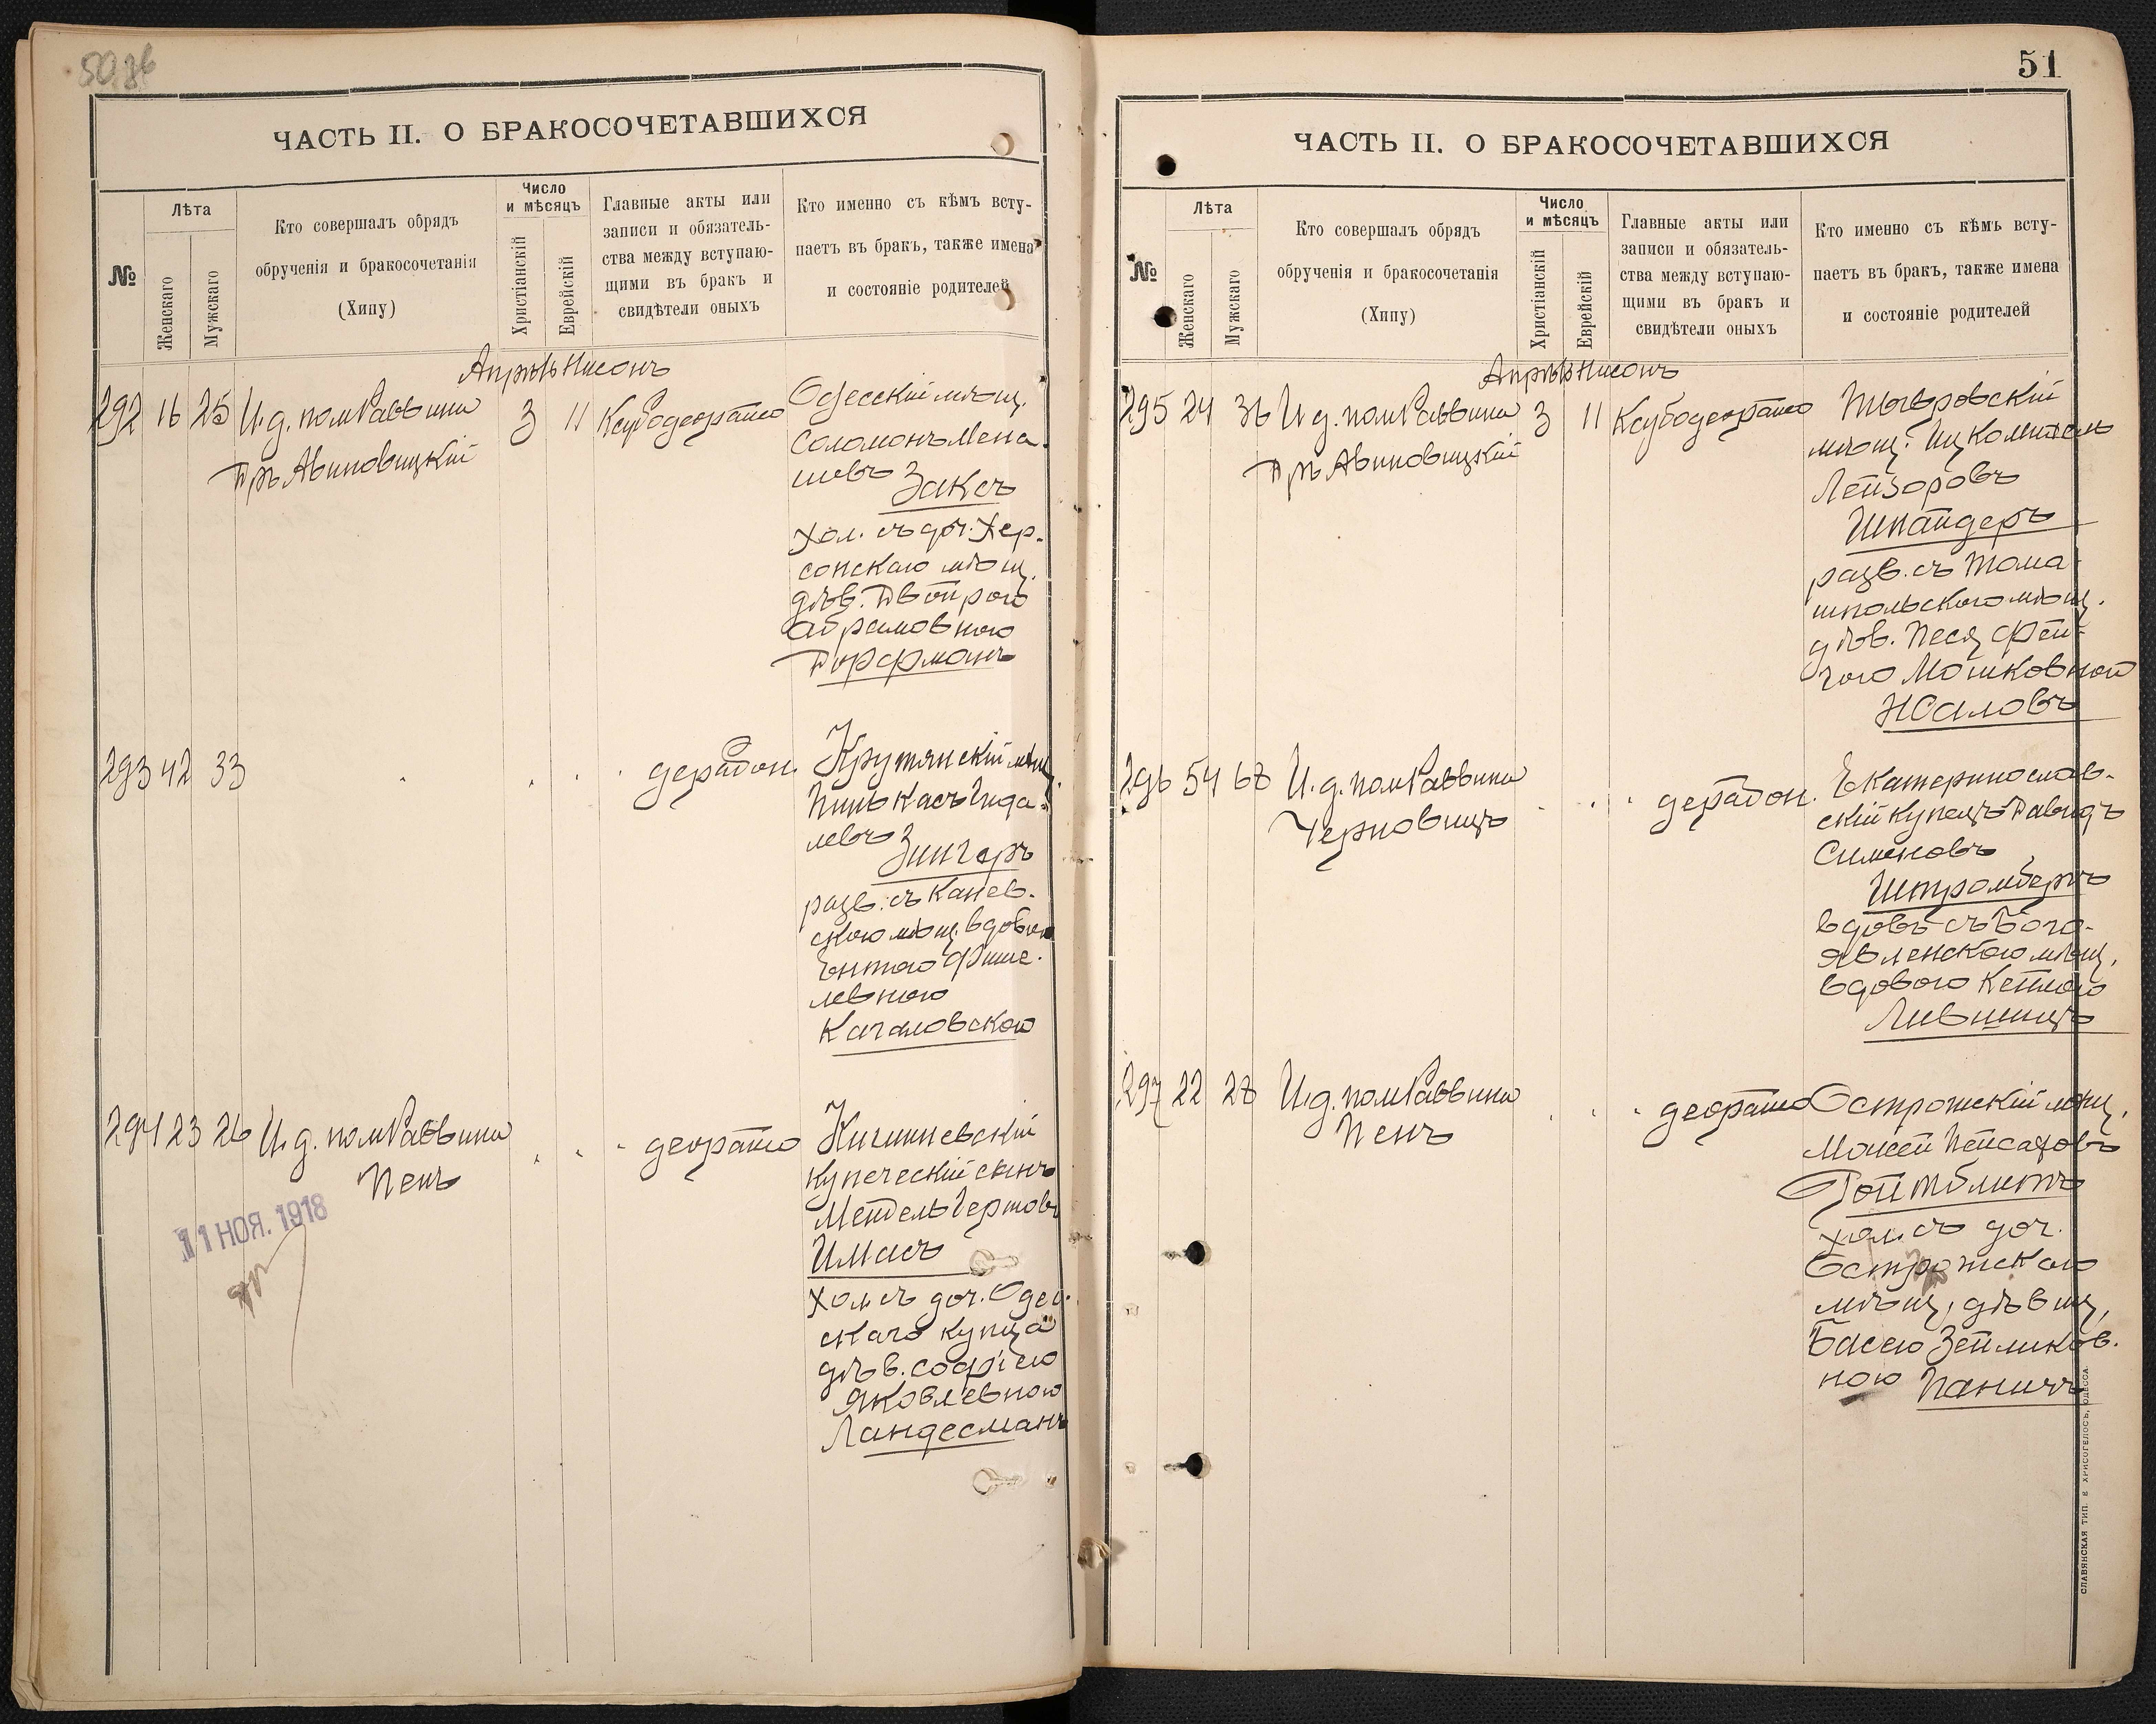 50
ЧАСТЬ II. О БРАКОСОЧЕТАВШИХСЯ
№
Лѣта
Женскаго
Мужскаго
Кто совершалъ обрядъ
обрученія и бракосочетанія
(Хипу)
Число
и мѣсяцъ
Христіанскій
Еврейскій
Главные акты или
записи и обязатель-
ства между вступаю-
щими въ бракъ и
свидѣтели оныхъ
Кто именно съ кѣмъ всту-
паетъ въ бракъ, также имена
и состояніе родителей
Апрѣль Нисонъ
292 16 25 И.д. пом Раввина 3 11 Ксубодеорайсо
Дръ Авиновицкій
Одесскій мѣщ.
Соломонъ Мена-
шевъ Заксъ
хол. съ доч. Хер-
сонскаго мѣщ.
дѣв. Двойрою
Абрамовною
Дорфманъ
293 42 33 дерабон.
Крутянскій мѣщ.
Пинькасъ Гида-
левъ Зингеръ
разв. съ Канев-
скою мѣщ. вдовою
Ентою Фише-
левною
Качаловскою
294 23 26 И.д. пом Раввина деорайсо
Пенъ
Кишиневскій
купеческій сынъ
Мендель Герцовъ
Имасъ
хол. съ доч. Одес-
скаго купца
дѣв. Софіею
Яковлевною
Ландесманъ
11 НОЯ. 1918
51
ЧАСТЬ II. О БРАКОСОЧЕТАВШИХСЯ
№
Лѣта
Женскаго
Мужскаго
Кто совершалъ обрядъ
обрученія и бракосочетанія
(Хипу)
Число
и мѣсяцъ
Христіанскій
Еврейскій
Главные акты или
записи и обязатель-
ства между вступаю-
щими въ бракъ и
свидѣтели оныхъ
Кто именно съ кѣмъ всту-
паетъ въ бракъ, также имена
и состояніе родителей
Апрѣль Нисонъ
295 24 36 И.д. пом Раввина 3 11 Ксубодеорайсо
Дръ Авиновицкій
Тывровскій
мѣщ.
Лейзоровъ
Шпайдеръ
разв. съ Тома-
шпольскою мѣщ.
дѣв. Песя Фей-
гою Мошковной
Жаловъ
296 54 68 И.д. пом Раввина дерабон.
Черновицъ
Екатеринослав-
скій купецъ Давидъ
Сименовъ
Штромбергъ
вдовъ съ Бого-
явленскою мѣщ.
вдовою Кейлою
Лившицъ
297 22 28 И.д. пом Раввина деорайсо
Пенъ
Острожскій мѣщ.
Мошей Пейсаховъ
Ройтблитъ
хол. съ доч.
Острожскаго
мѣщ. дѣвиц.
Басею Зейликов-
ною Паничъ
СЛАВЯНСКАЯ ТИП. Е ХРИСОГЕЛОСЪ, ОДЕССА